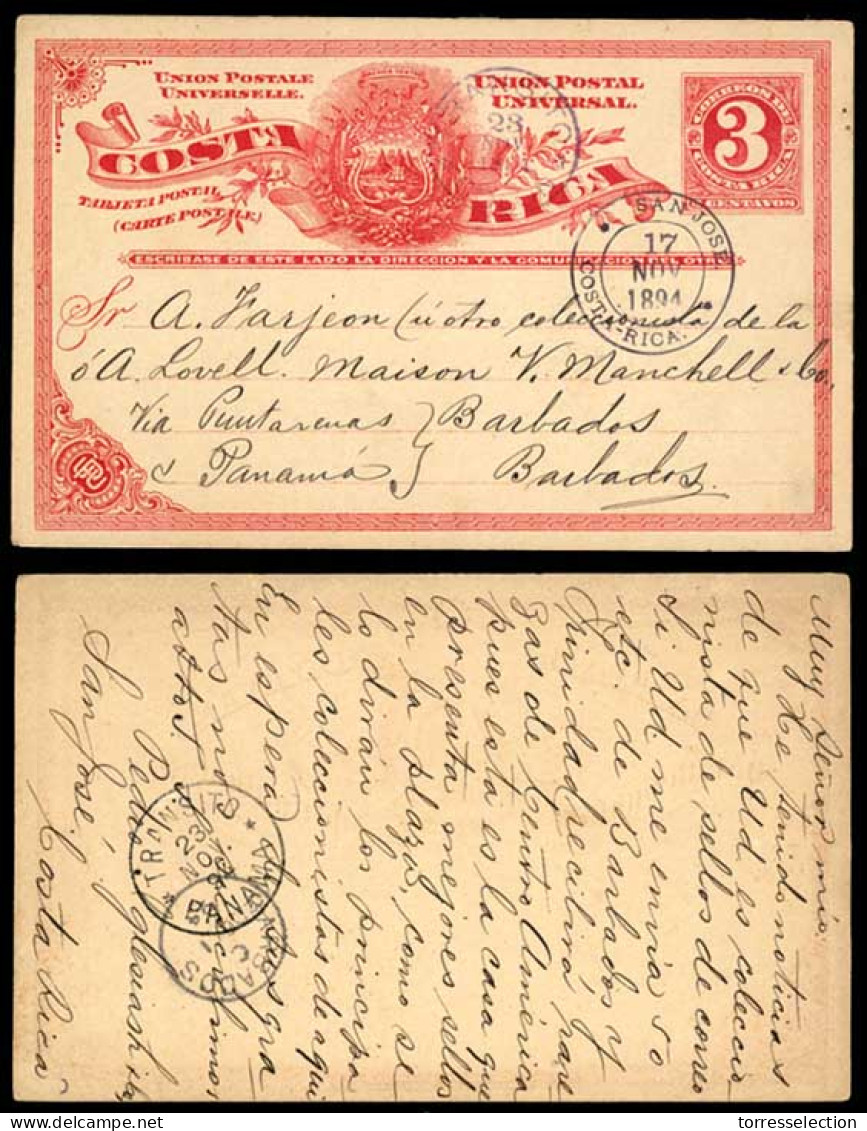 UNION POSTALE
UNIVERSELLE.
UNION POSTAL
UNIVERSAL.
COSTA RICA
TARJETA POSTAL
(CARTE POSTALE)
CORREOS DE
3
COSTA RICA
CENTAVOS
23
SAN JOSE
17
NOV
1894
COSTA-RICA.
ESCRIBASE DE ESTE LADO LA DIRECCION Y LA COMUNICACION DEL OTRO
Sr A. Farjeon (ú otro coleccionista de la
ó A. Lovell. Maison V. Manchell & Co.
Via Puntarenas } Barbados
& Panamá } Barbados
Muy Señor mío
He tenido noticias
de que Ud es coleccio
nista de sellos de correo
Si Ud me envia 50
etc. de Barbados y
Trinidad recibirá
gas de Centro América
pues esta es la casa que
presenta mejores sellos
en la plaza, como se
lo dirán los principa
les coleccionistas de aqui
En espera de sus gra
tas nos
attos
Pedro Iglesias
San José.
Costa Rica
TRANSITO
23
NOV
PANAMA
BARBADOS
torresseleccion